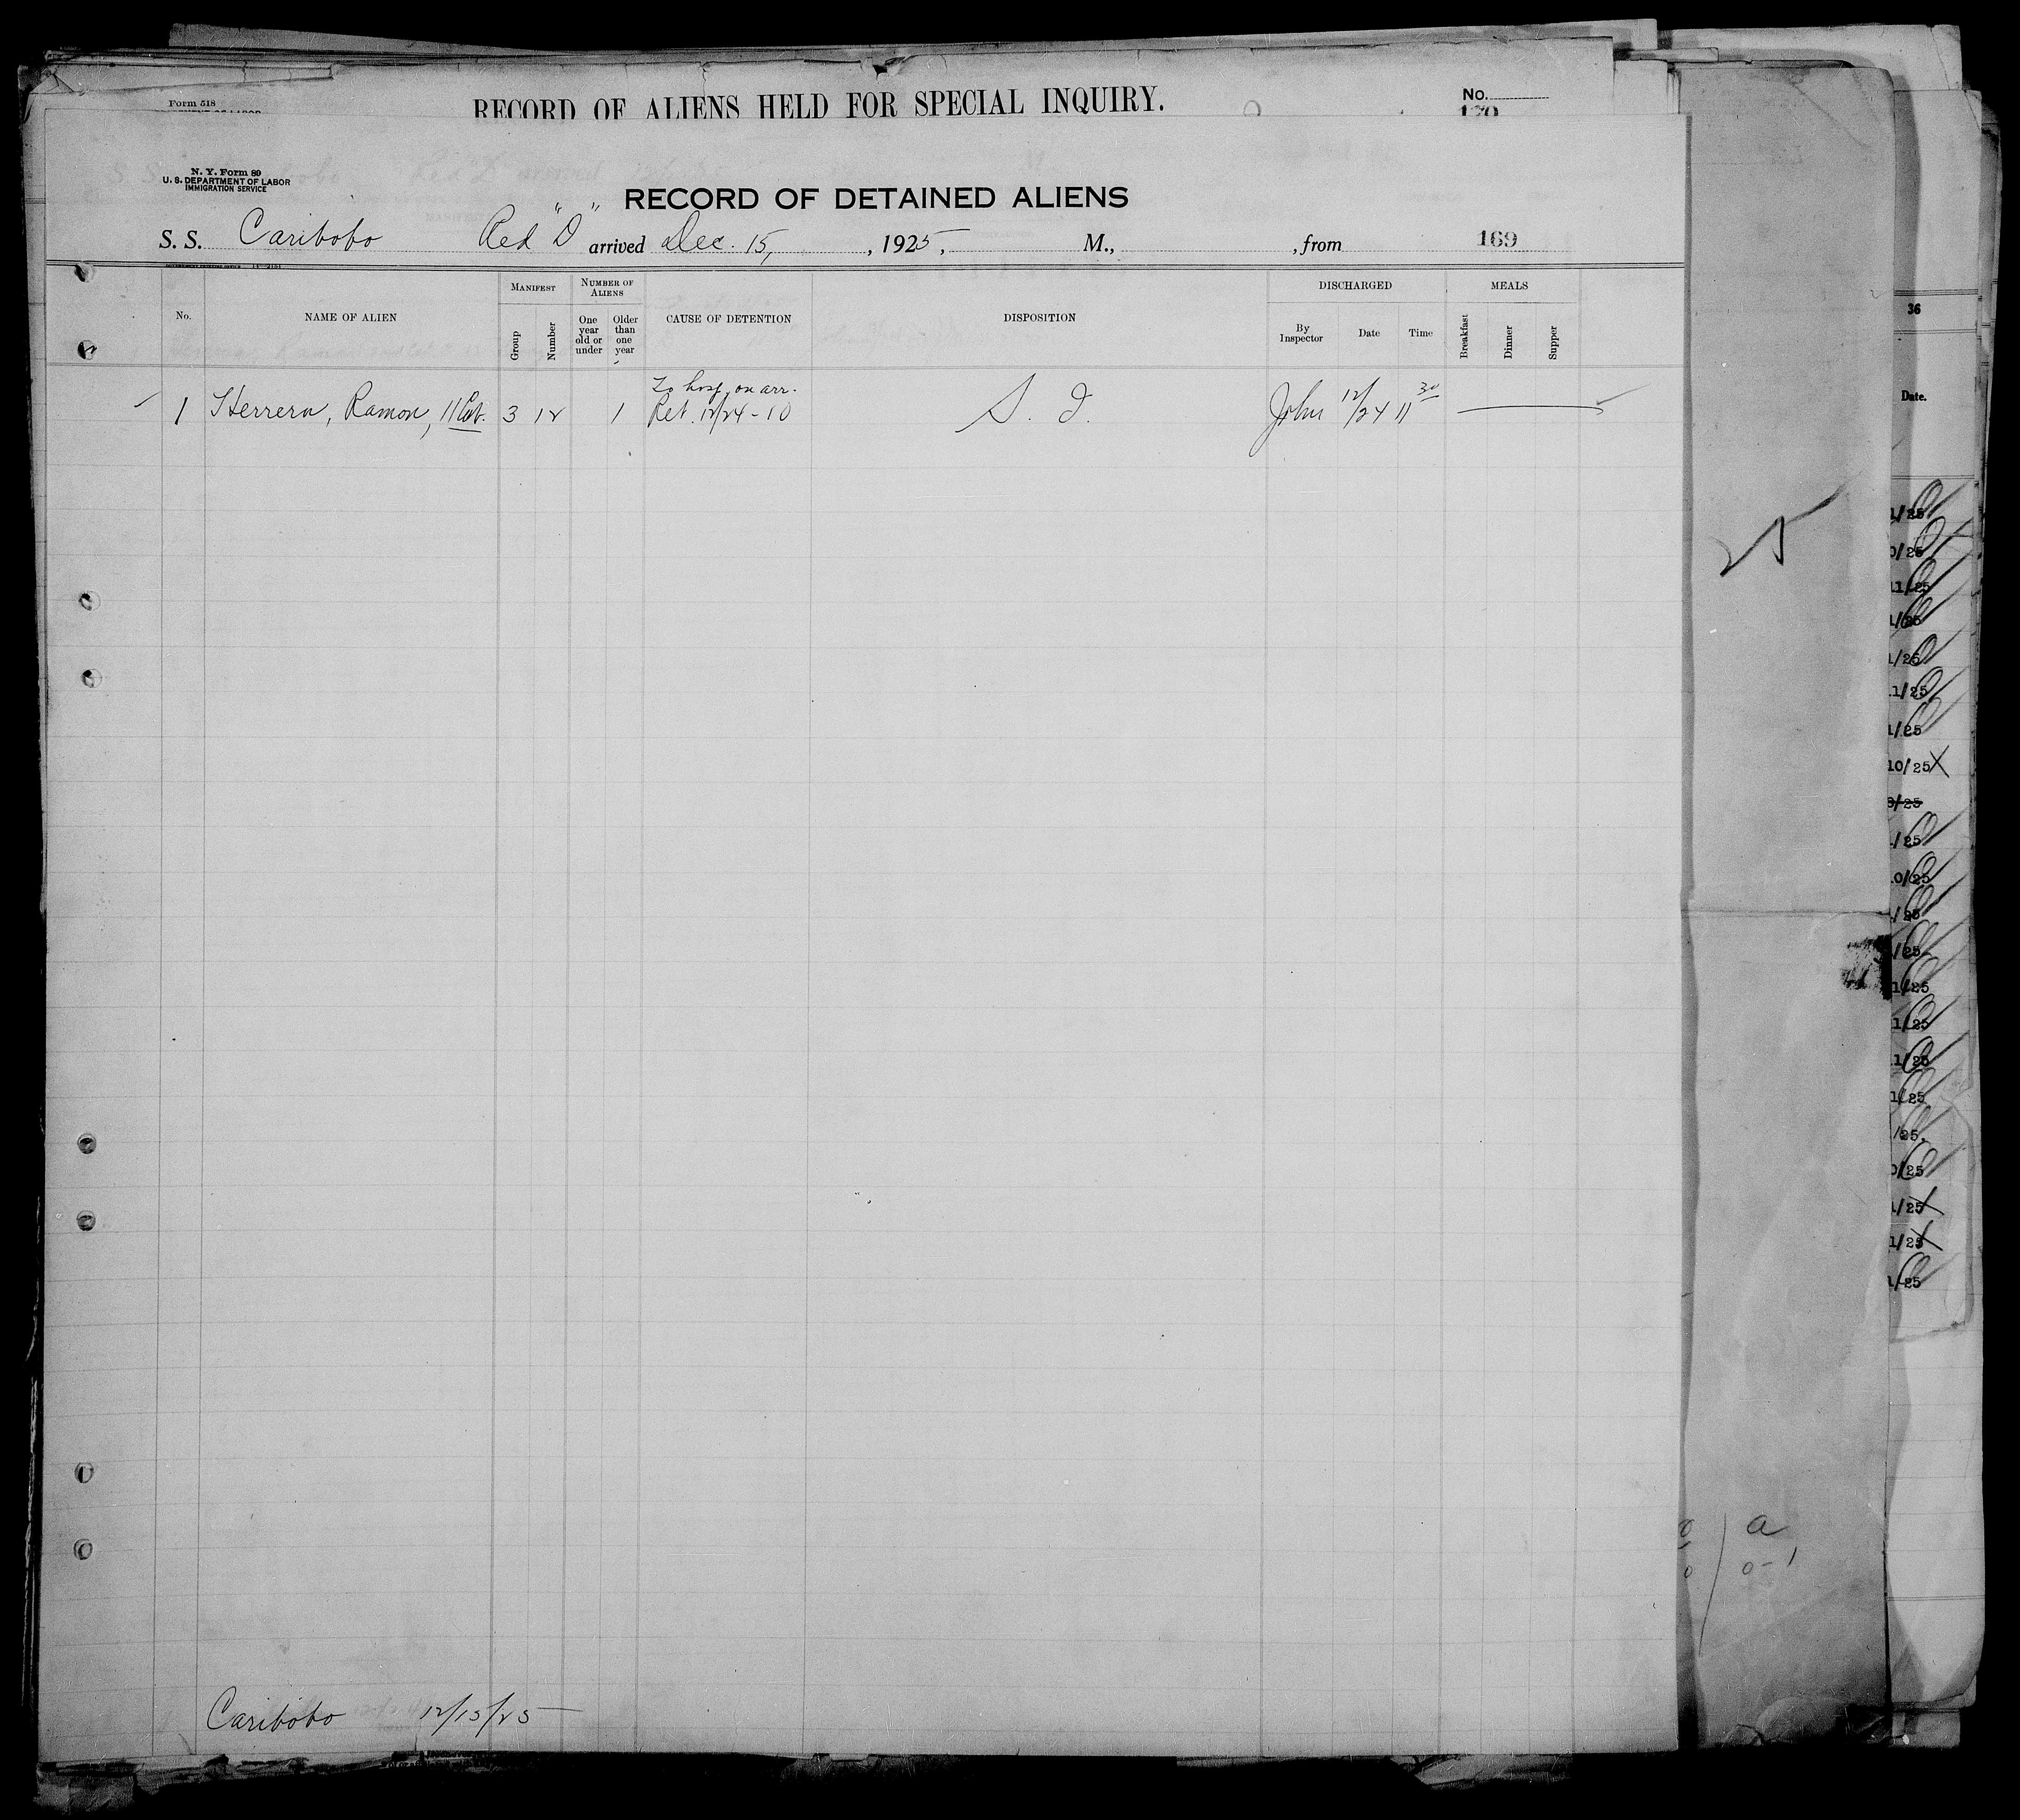 Form 518
RECORD OF ALIENS HELD FOR SPECIAL INQUIRY.
No.
170
N. Y. Form 89
U. S. DEPARTMENT OF LABOR
IMMIGRATION SERVICE
RECORD OF DETAINED ALIENS
S. S. Caribobo Red "D" arrived Dec. 15, , 1925, M., , from 169
No.
NAME OF ALIEN
MANIFEST
Group
Number
NUMBER OF ALIENS
One year old or under
Older than one year
CAUSE OF DETENTION
DISPOSITION
DISCHARGED
By Inspector
Date
Time
MEALS
Breakfast
Dinner
Supper
To hosp. on arr.
1 Herrera, Ramon, II Cab. 3 12 1 Ret. 12/24 - 10 S. I. John 12/24 11 30
Caribobo 12/15/25
36
Date.
25
a
0-1
1/25
0/25
11/25
1/25
1/25
1/25
1/25
10/25
9/25
1/25
0/25
/25
/25
1/25
1/25
1/25
1/25
/25.
0/25
1/25
1/25
1/25